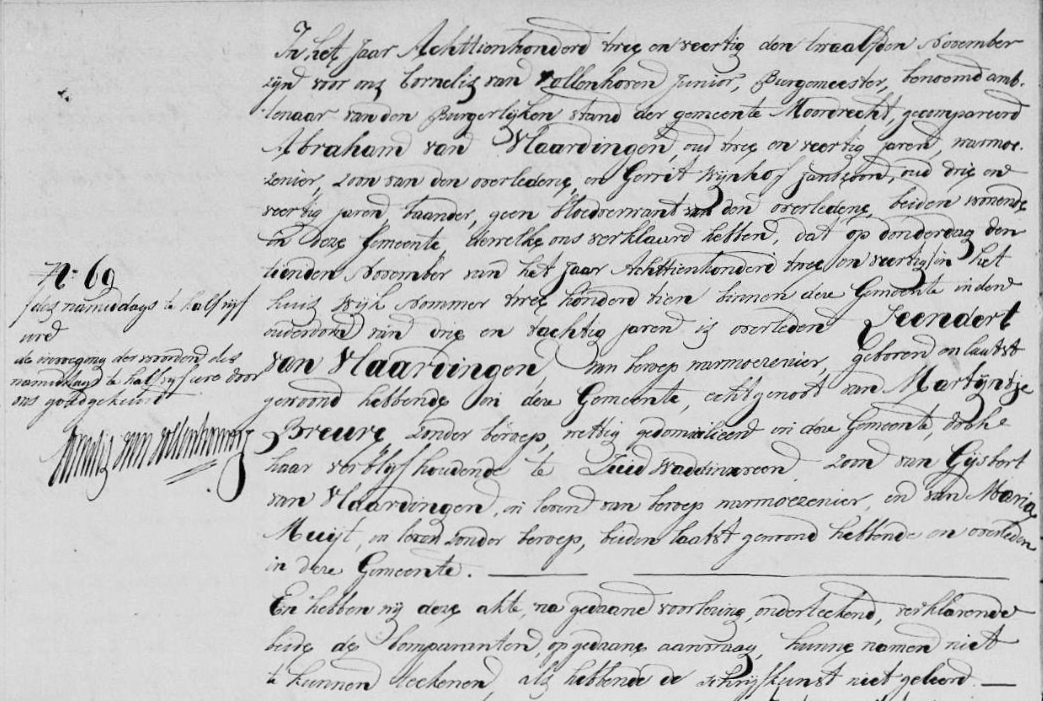 In het Jaar Achttienhonderd twee en veertig den twaalfden November
zijn voor ons Cornelis van Vollenhoven Junior, Burgemeester, benoemd amb-
tenaar van den Burgerlijken stand der gemeente Moordrecht, gecompareerd
Abraham van Vlaardingen, oud twee en veertig jaren, warmoe-
zenier, zoon van den overledene, en Gerrit Wijnhof Janszoon, oud drie en
veertig jaren, taander, geen bloedverwant van den overledene, beiden wonende
in deze Gemeente, dewelke ons verklaard hebben, dat op donderdag den
tienden November van het Jaar Achttienhonderd twee en veertig in het
huis Wijk Nommer twee honderd tien binnen deze Gemeente in den
ouderdom van drie en tachtig jaren is overleden Leendert
van Vlaardingen van beroep warmoezenier, geboren en laatst
gewoond hebbende in deze Gemeente, echtgenoot van Martijntje
Breure, zonder beroep, wettig gedomicilieerd in deze Gemeente, doch
haar verblijf houdende te Zuid Waddinxveen zoon van Gijsbert
van Vlaardingen, in leven van beroep warmoezenier, en van Maria
Muijt, in leven zonder beroep, beiden laatst gewoond hebbende en overleden
in deze Gemeente.
En hebben wij deze akte, na gedaane voorlezing, onderteekend, verklarende
beide de Comparanten, op gedaane aanvraag, hunne namen niet
te kunnen teekenen, als hebbende de schrijfkunst niet geleerd.
No. 69
des namiddags te half vijf
ure
de invoeging der woorden des
namiddags te half vijf ure door
ons goedgekeurd
Cornelis van Vollenhoven